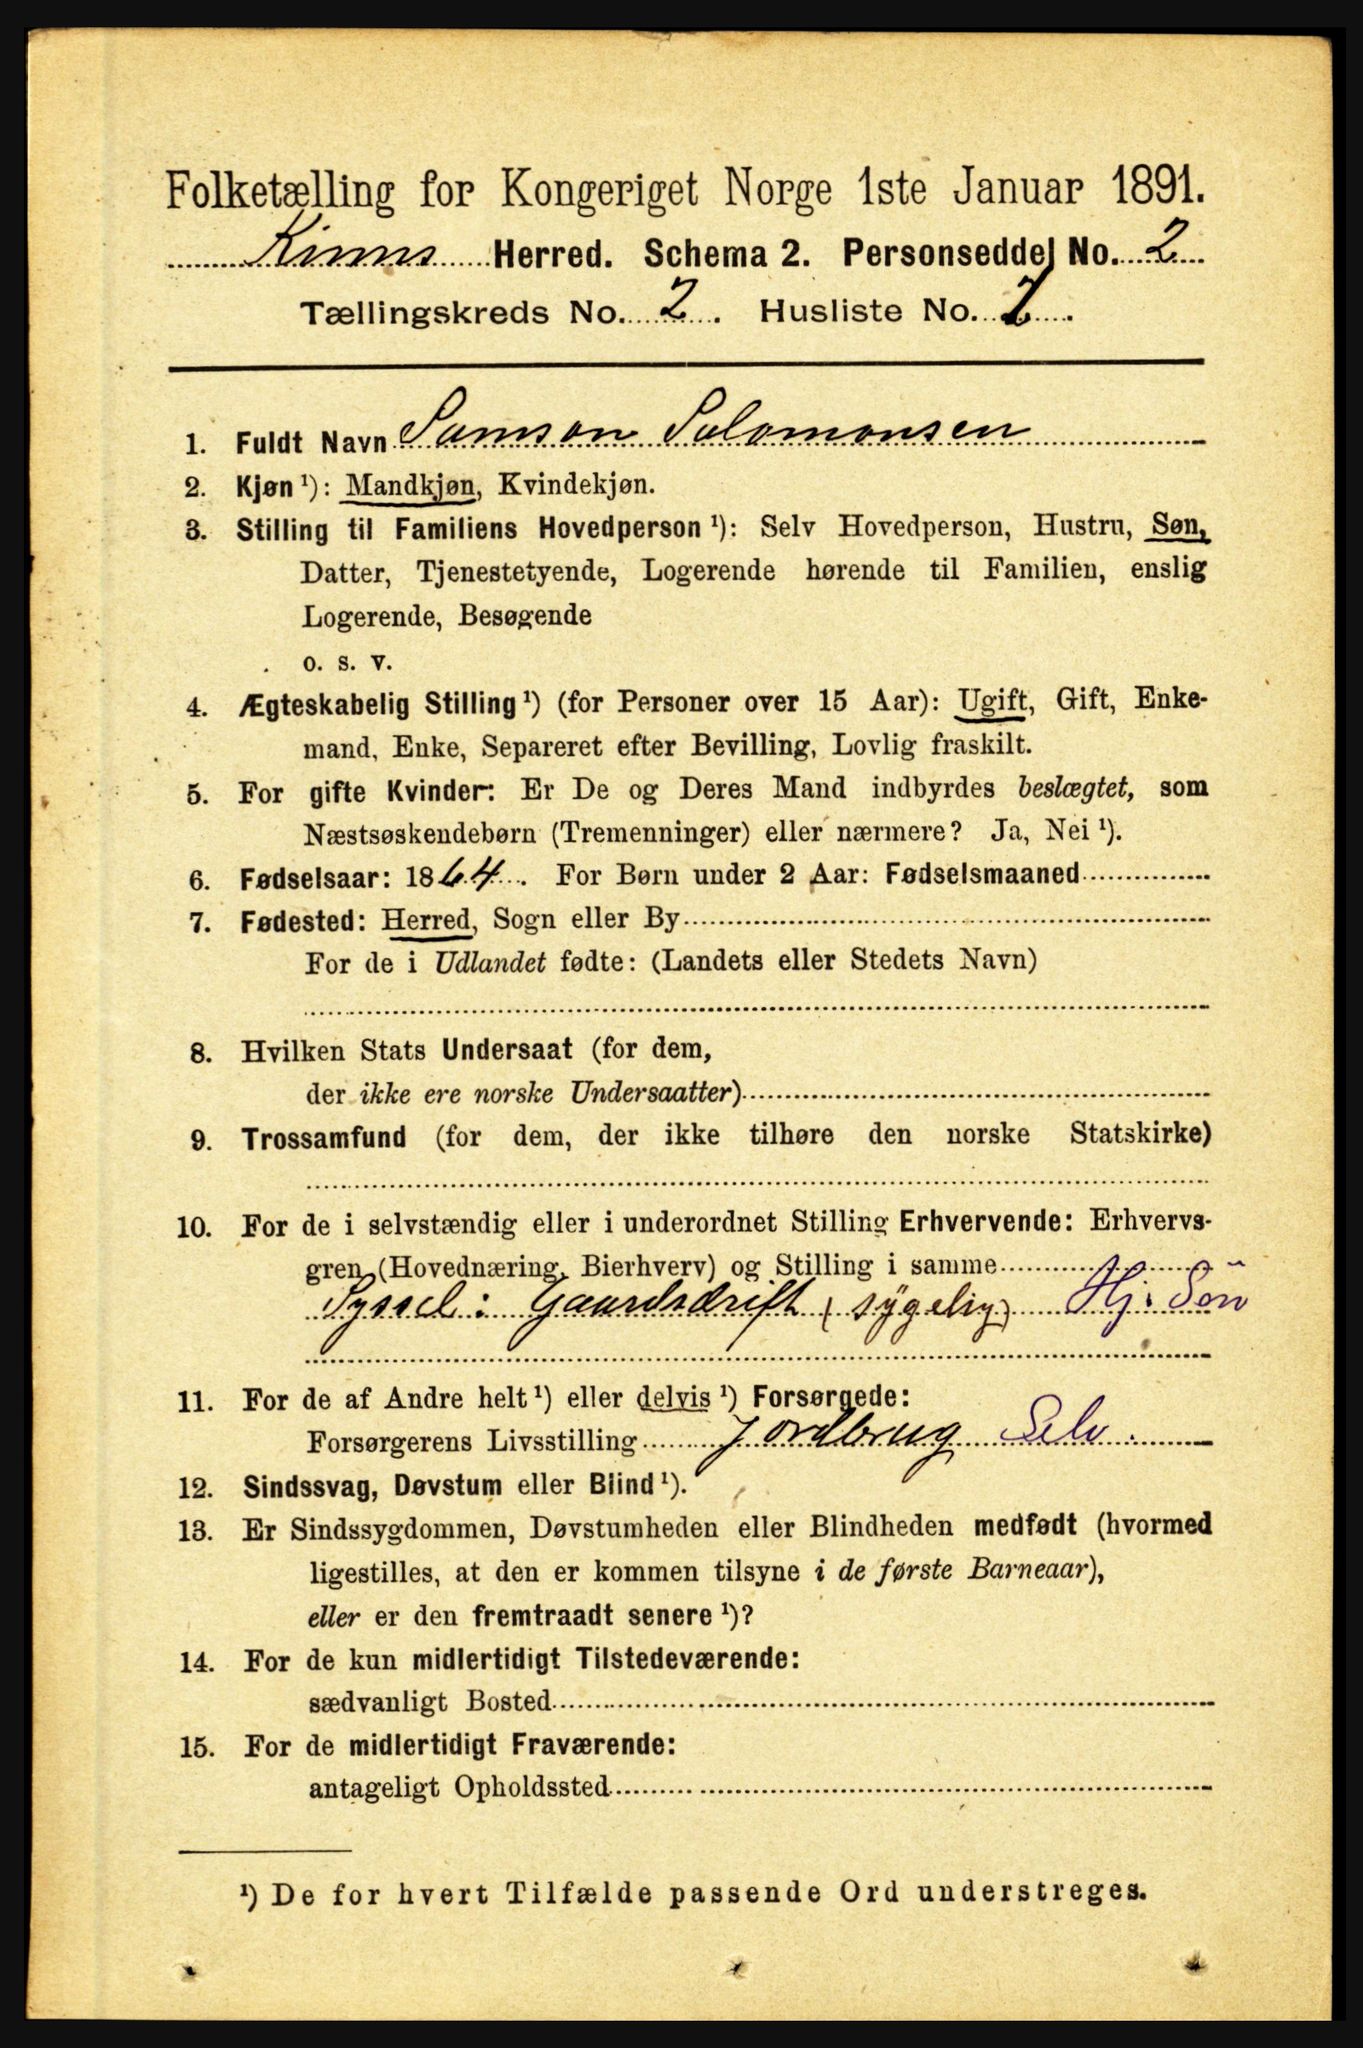 Folketælling for Kongeriget Norge 1ste Januar 1891.
Kinns Herred. Schema 2. Personseddel No. 2
Tællingskreds No. 2. Husliste No.
1. Fuldt Navn Samson Salomonsen
2. Kjøn ¹): Mandkjøn, Kvindekjøn.
3. Stilling til Familiens Hovedperson ¹): Selv Hovedperson, Hustru, Søn,
Datter, Tjenestetyende, Logerende hørende til Familien, enslig
Logerende, Besøgende
o. s. v.
4. Ægteskabelig Stilling ¹) (for Personer over 15 Aar): Ugift, Gift, Enke-
mand, Enke, Separeret efter Bevilling, Lovlig fraskilt.
5. For gifte Kvinder: Er De og Deres Mand indbyrdes beslægtet, som
Næstsøskendebørn (Tremenninger) eller nærmere? Ja, Nei ¹).
6. Fødselsaar: 1864. For Børn under 2 Aar: Fødselsmaaned
7. Fødested: Herred, Sogn eller By
For de i Udlandet fødte: (Landets eller Stedets Navn)
8. Hvilken Stats Undersaat (for dem,
der ikke ere norske Undersaatter)
9. Trossamfund (for dem, der ikke tilhøre den norske Statskirke)
10. For de i selvstændig eller i underordnet Stilling Erhvervende: Erhvervs-
gren (Hovednæring, Bierhverv) og Stilling i samme
Syssel: Gaardsdrift (sygelig) Hj. Søn
11. For de af Andre helt ¹) eller delvis ¹) Forsørgede:
Forsørgerens Livsstilling Jordbrug Selv.
12. Sindssvag, Døvstum eller Blind ¹).
13. Er Sindssygdommen, Døvstumheden eller Blindheden medfødt (hvormed
ligestilles, at den er kommen tilsyne i de første Barneaar),
eller er den fremtraadt senere ¹)?
14. For de kun midlertidigt Tilstedeværende:
sædvanligt Bosted
15. For de midlertidigt Fraværende:
antageligt Opholdssted
¹) De for hvert Tilfælde passende Ord understreges.